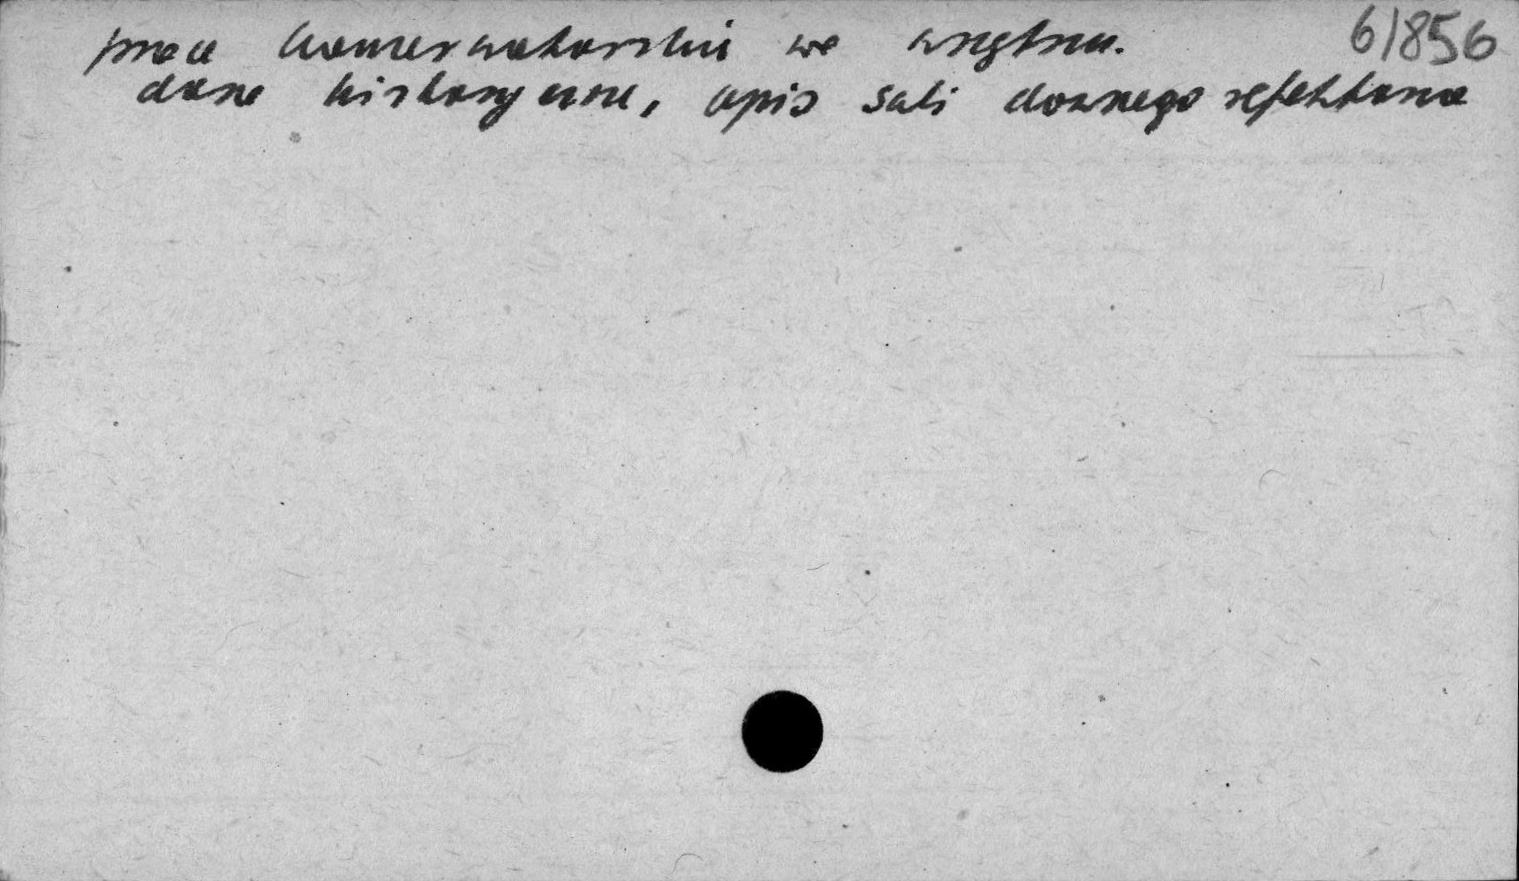 6/856
prac konserwatorskich we wnętrzu.
dane historyczne, opis sali dawnego refektarza